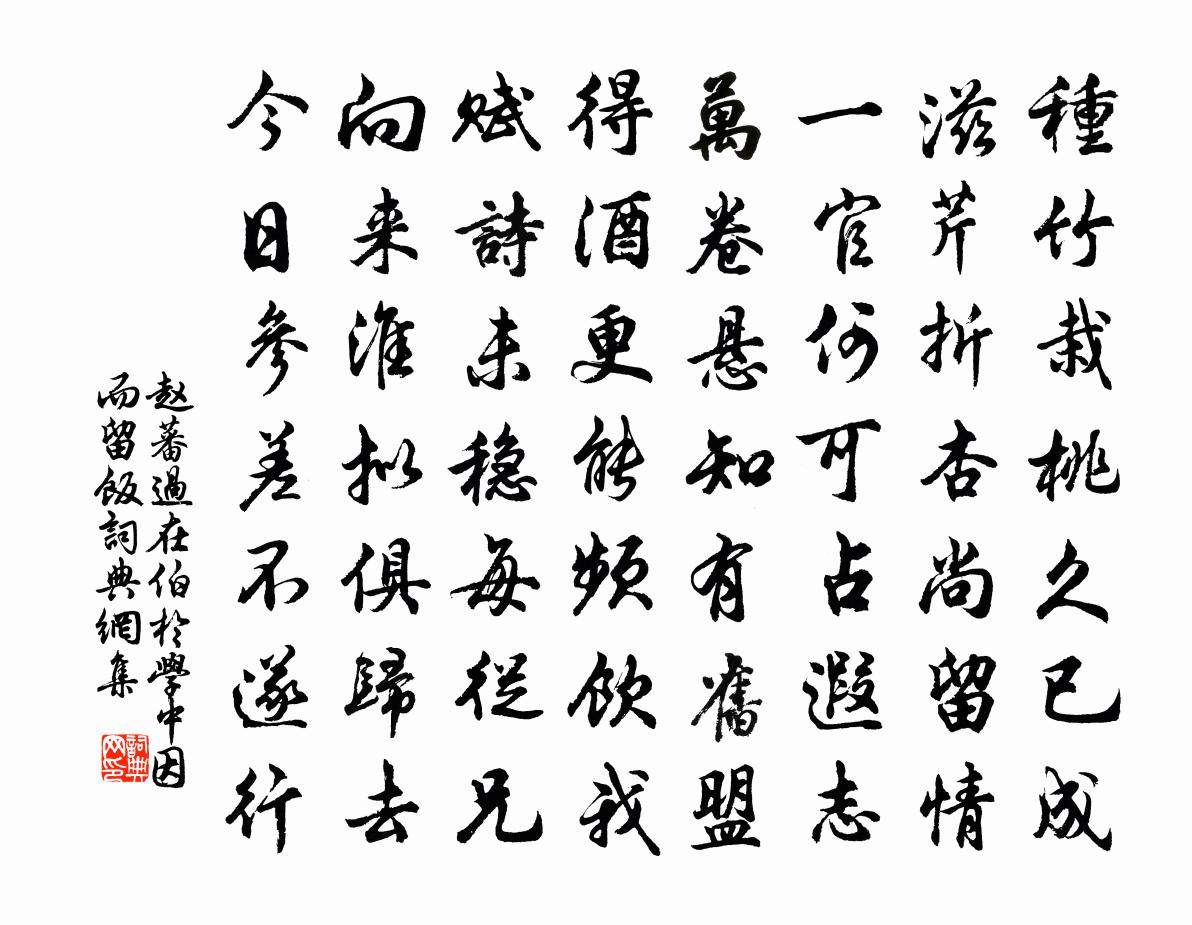 種竹栽桃久已成
滋芹折杏尚留情
一官何可占遐志
萬卷懸知有舊盟
得酒更能頻飲我
賦詩未穩每從兄
向来淮擬俱歸去
今日參差不遂行
赵蕃過在伯於學中因
而留飯詞典網集
詞典网印